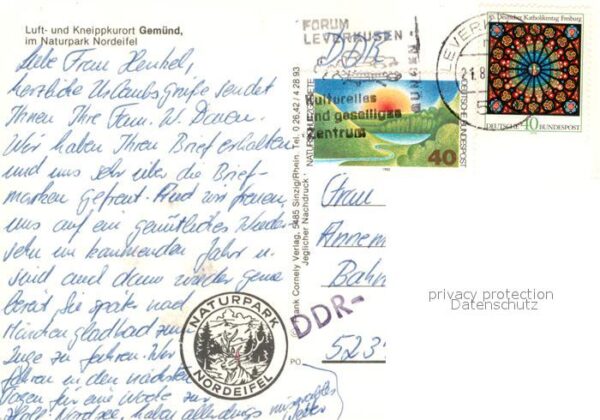 Luft- und Kneippkurort Gemünd,
im Naturpark Nordeifel
Liebe Frau Henkel,
herzliche Urlaubsgrüße sendet
Ihnen Ihre Fam. W. Doren.
Wir haben Ihren Brief erhalten
und uns sehr über die Brief-
marken gefreut. Und wir freuen
uns auf ein gemütliches Wieder-
sehn im kommenden Jahr u.
sind auch dann wieder gerne
bereit Sie später nach
Mönchengladbach zum
Zuge zu fahren. Wir
fahren in den nächsten
Tagen für eine Woche zur
Nordsee, haben allerdings
Wetter
NATURPARK
NORDEIFEL
Cornely Verlag, 5485 Sinzig/Rhein, Tel. 0 26 42 / 4 28 93
Jeglicher Nachdruck
FORUM
LEVERKUSEN
DDR
Kulturelles
und geselliges
Zentrum
NATURSCHUTZGEBIETE
DEUTSCHE BUNDESPOST
40
LEVERKUSEN
21.8
5
85. Deutscher Katholikentag Freiburg
DEUTSCHE BUNDESPOST
40
Frau
Annem
Bahn
DDR-
523
privacy protection
Datenschutz